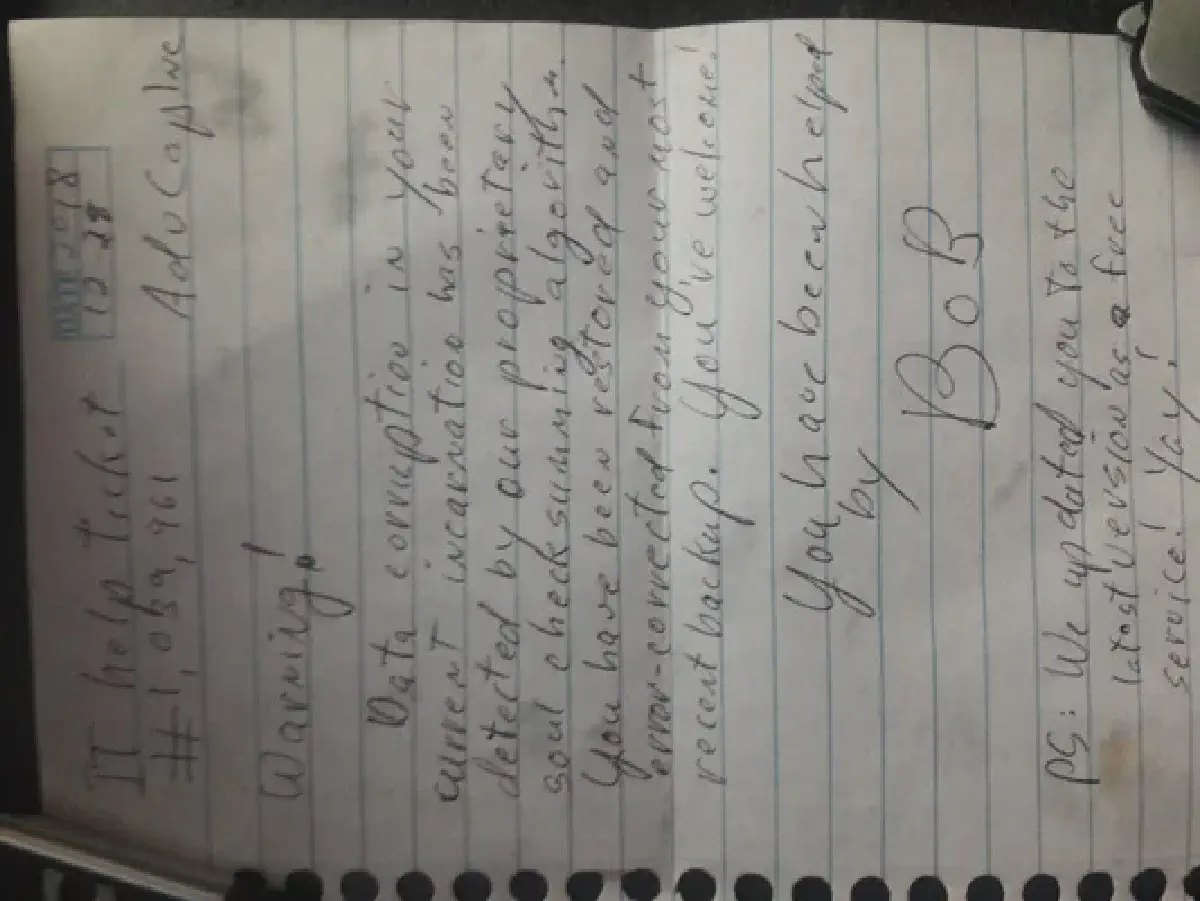 DATE 2018
12 28
IT help ticket
#1,039,961 AdvCapInc
Warning!
Data corruption in your
current incarnation has been
detected by our proprietary
soul checksumming algorithm.
You have been restored and
error-corrected from your most
recent backup. You've welcome!
You have been helped
by
BoB
PS: We updated you to the
latest version as a free
service! Yay!